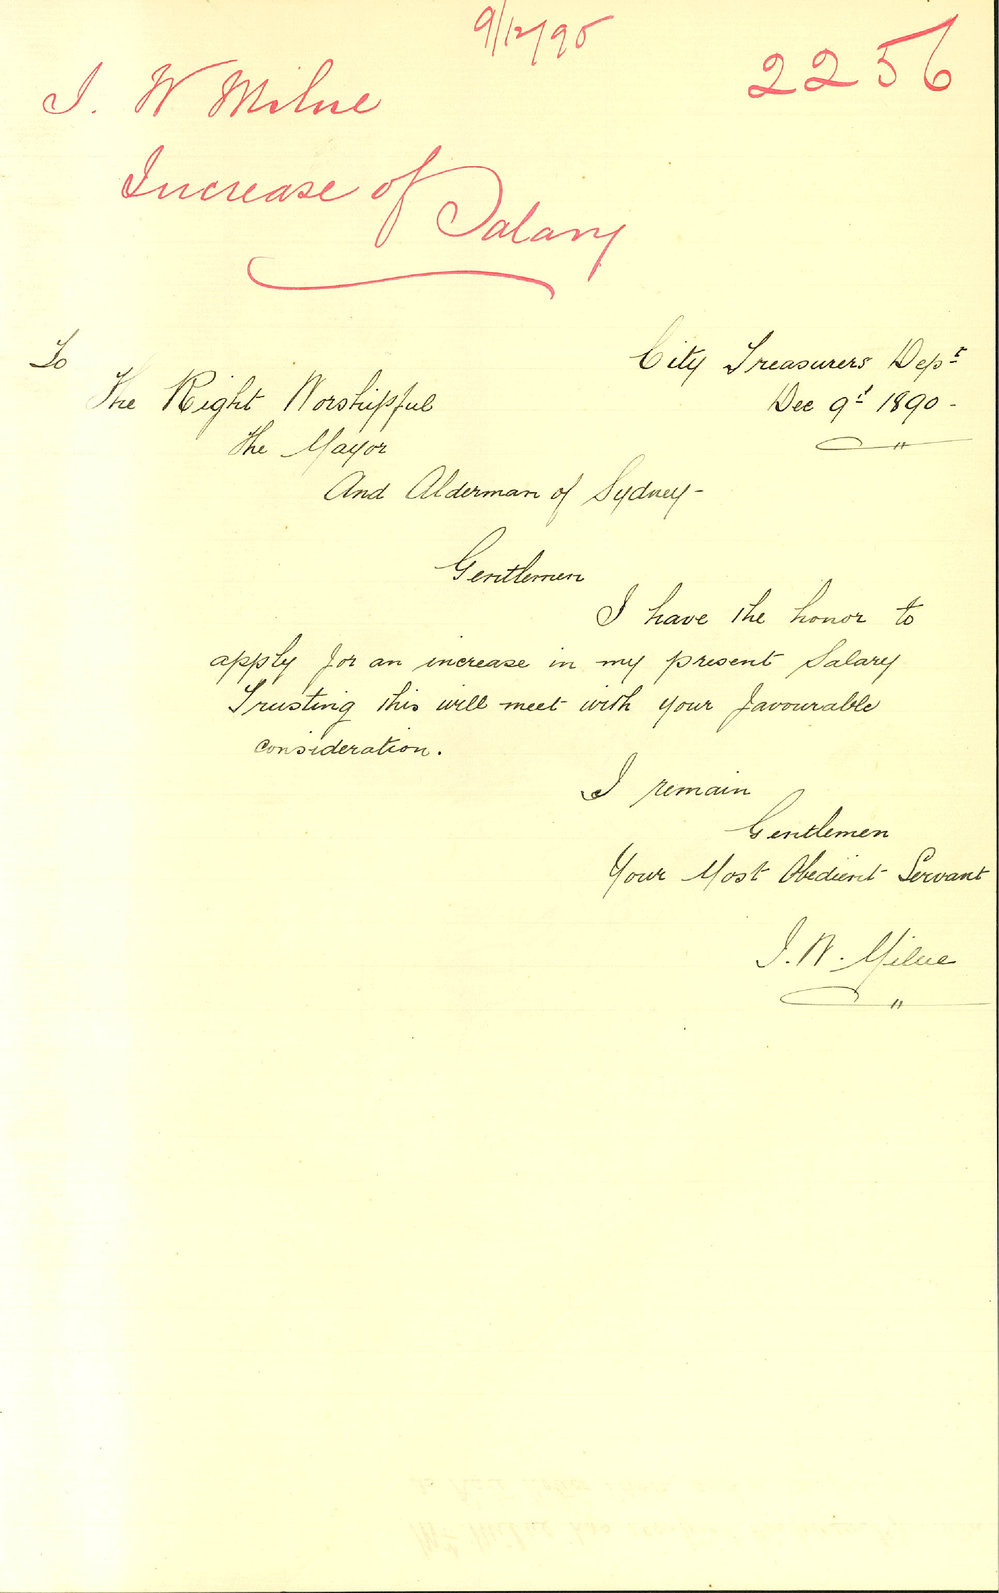 9/12/90
2256
J. W Milne
Increase of
Salary
To
City Treasurers Dept
Dec 9t 1890 -
The Right Worshipful
the Mayor
And Alderman of Sydney -
Gentlemen
I have the honor to
apply for an increase in my present Salary
Trusting this will meet with your favourable
consideration.
I remain
Gentlemen
Your Most Obedient Servant
J. W. Milne